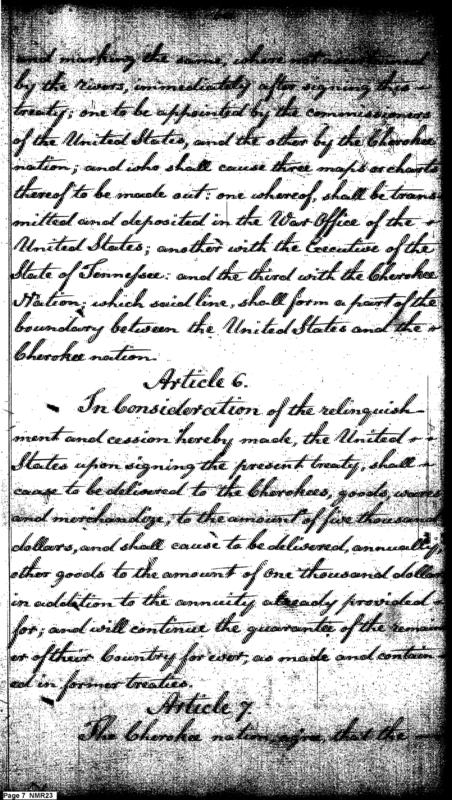 and marking the same, where not ascertained
by the rivers, immediately after signing this
treaty; one to be appointed by the commissioners
of the United States, and the other by the Cherokee
nation; and who shall cause three maps or charts
thereof to be made out: one whereof, shall be trans-
mitted and deposited in the War Office of the
United States; another with the Executive of the
State of Tennessee: and the third with the Cherokee
Nation; which said line, shall form a part of the
boundary between the United States and the
Cherokee nation.
Article 6.
In Consideration of the relinquish-
ment and cession hereby made, the United
States upon signing the present treaty, shall
cause to be delivered to the Cherokees, goods, wares
and merchandize, to the amount of five thousand
dollars, and shall cause to be delivered, annually,
other goods to the amount of one thousand dollars
in addition to the annuity already provided
for; and will continue the guarantee of the remain-
er of their Country for ever, as made and contain-
ed in former treaties.
Article 7.
The Cherokee nation, agree, that the
Page 7 NMR23